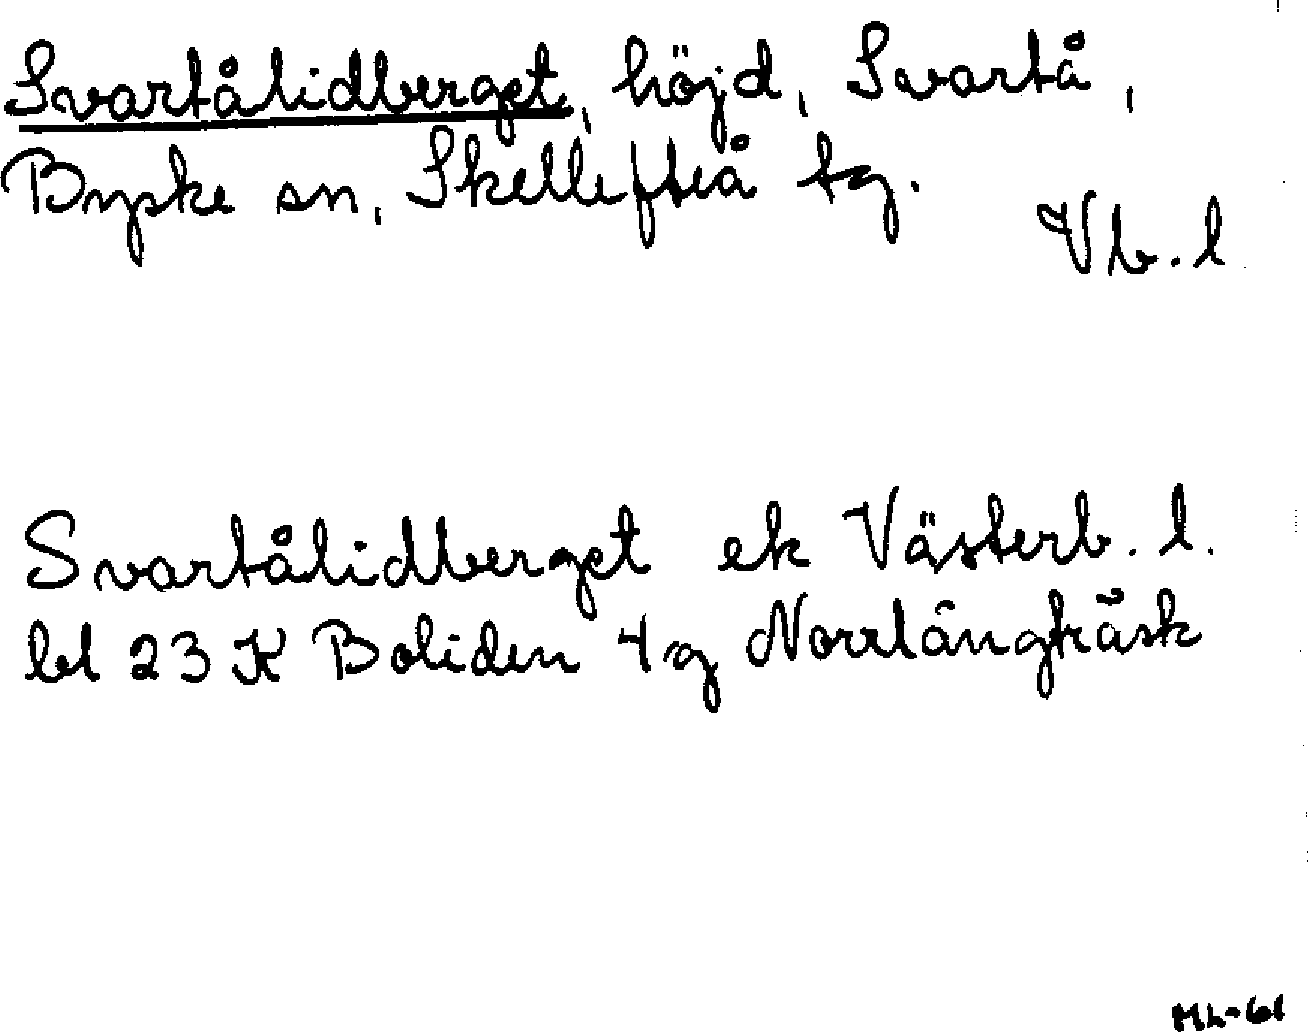 Svartålidberget, höjd, Svartå,
Byske sn, Skellefteå tg.
Vb. l
Svartålidberget ek Västerb. l.
bl 23 K Boliden 4g Norrlångträsk
ML-61